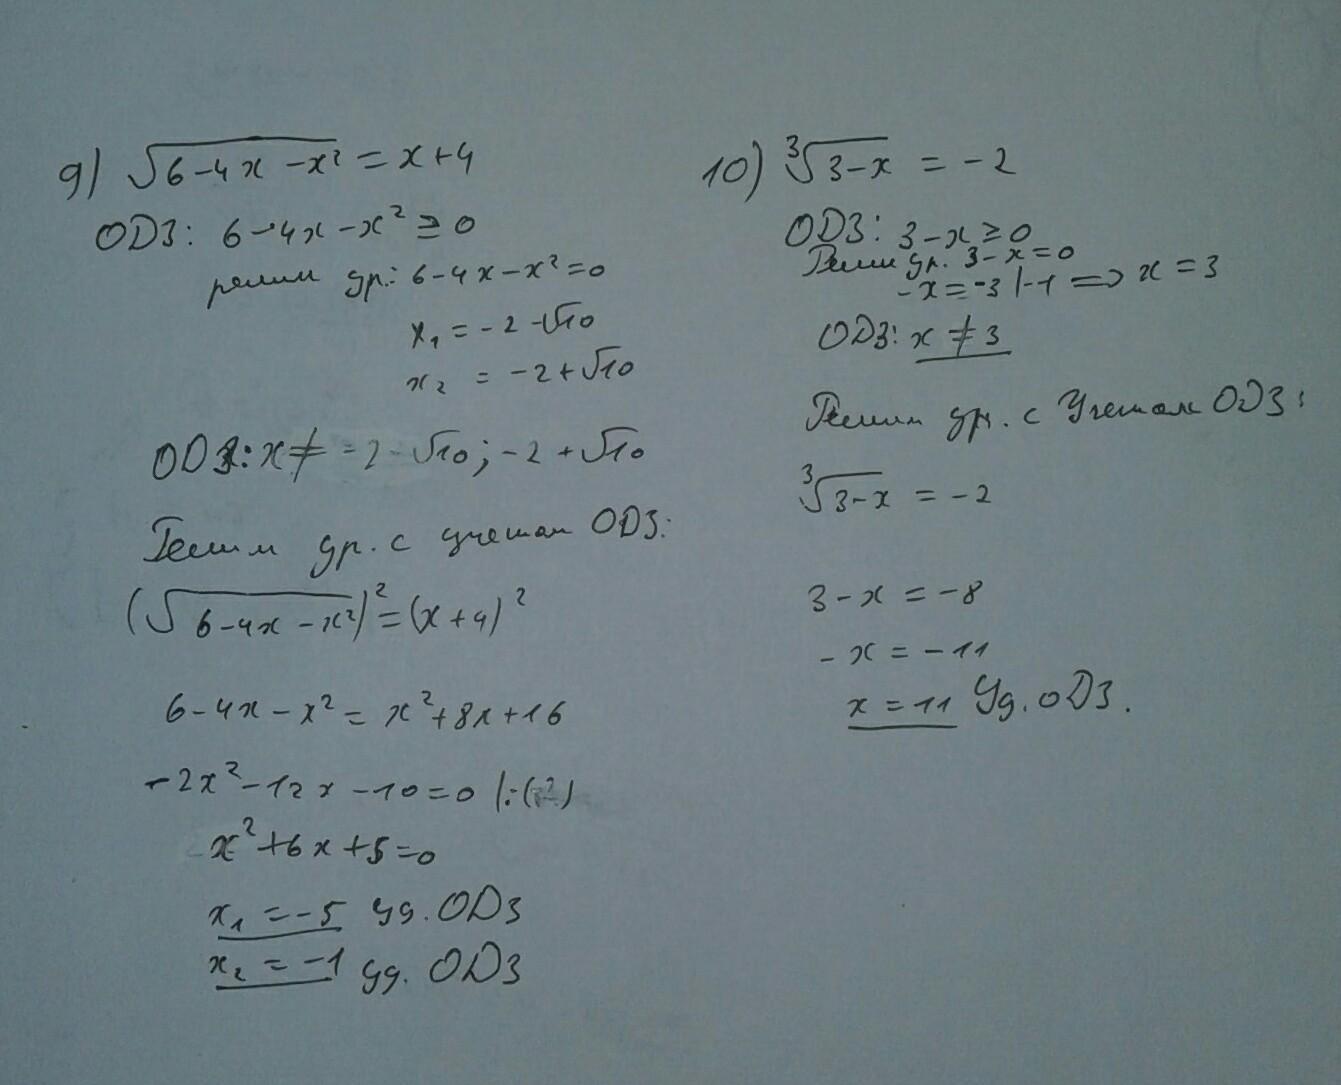 9) √(6-4x-x²) = x+4
ОДЗ: 6-4x-x² ≥ 0
решим ур.: 6-4x-x²=0
x₁ = -2-√10
x₂ = -2+√10
ОДЗ: x ≠ -2-√10; -2+√10
Решим ур. с учетом ОДЗ:
(√(6-4x-x²))² = (x+4)²
6-4x-x² = x²+8x+16
-2x²-12x-10=0 |:(-2)
x²+6x+5=0
x₁ = -5 уд. ОДЗ
x₂ = -1 уд. ОДЗ
10) ∛(3-x) = -2
ОДЗ: 3-x ≥ 0
Решим ур. 3-x=0
-x = -3 |·-1 => x = 3
ОДЗ: x ≠ 3
Решим ур. с Учетом ОДЗ:
∛(3-x) = -2
3-x = -8
-x = -11
x = 11 Уд. ОДЗ.